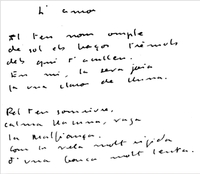 L'amor
El teu nom omple
de sol els llacs trèmols
des que t'acullen.
En mi, la seva joia
la veu clara de lluna.
Pel teu somriure,
calma llacuna, vaga
la malfiança.
Com la vela molt rígida
d'una barca molt lenta.